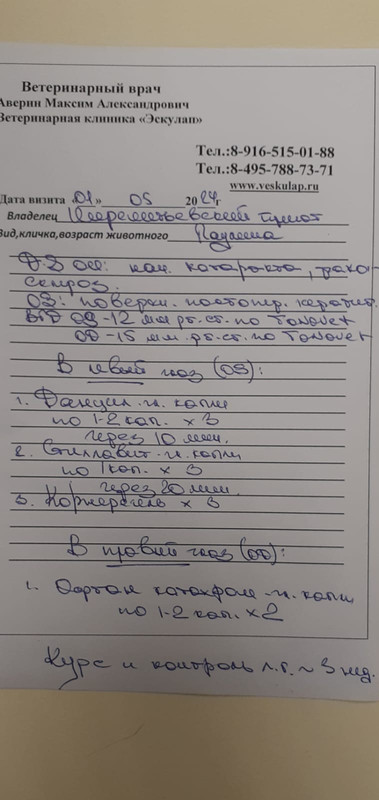 Ветеринарный врач
Аверин Максим Александрович
Ветеринарная клиника «Эскулап»
Тел.:8-916-515-01-88
Тел.:8-495-788-73-71
www.veskulap.ru
Дата визита «01» 05 2024г
Владелец Шереметьевский приют
Вид,кличка,возраст животного
D.S OU: нач. катаракта, фако-
склероз.
OS: поверхн. кератит.
ВГД OS-12 мм рт.ст. по Tonovet
OD-15 мм.рт.ст. по Tonovet
В левый глаз (OS):
1. Данцил-гл. капли
по 1-2 кап. x 3
через 10 мин.
2. Стиллавит-гл. капли
по 1 кап. x 3
через 20 мин.
3. Корнерегель x 3
В правый глаз (OD):
1. Офтан катахром-гл. капли
по 1-2 кап. x 2
Курс и контроль л.г. ~ 3 нед.